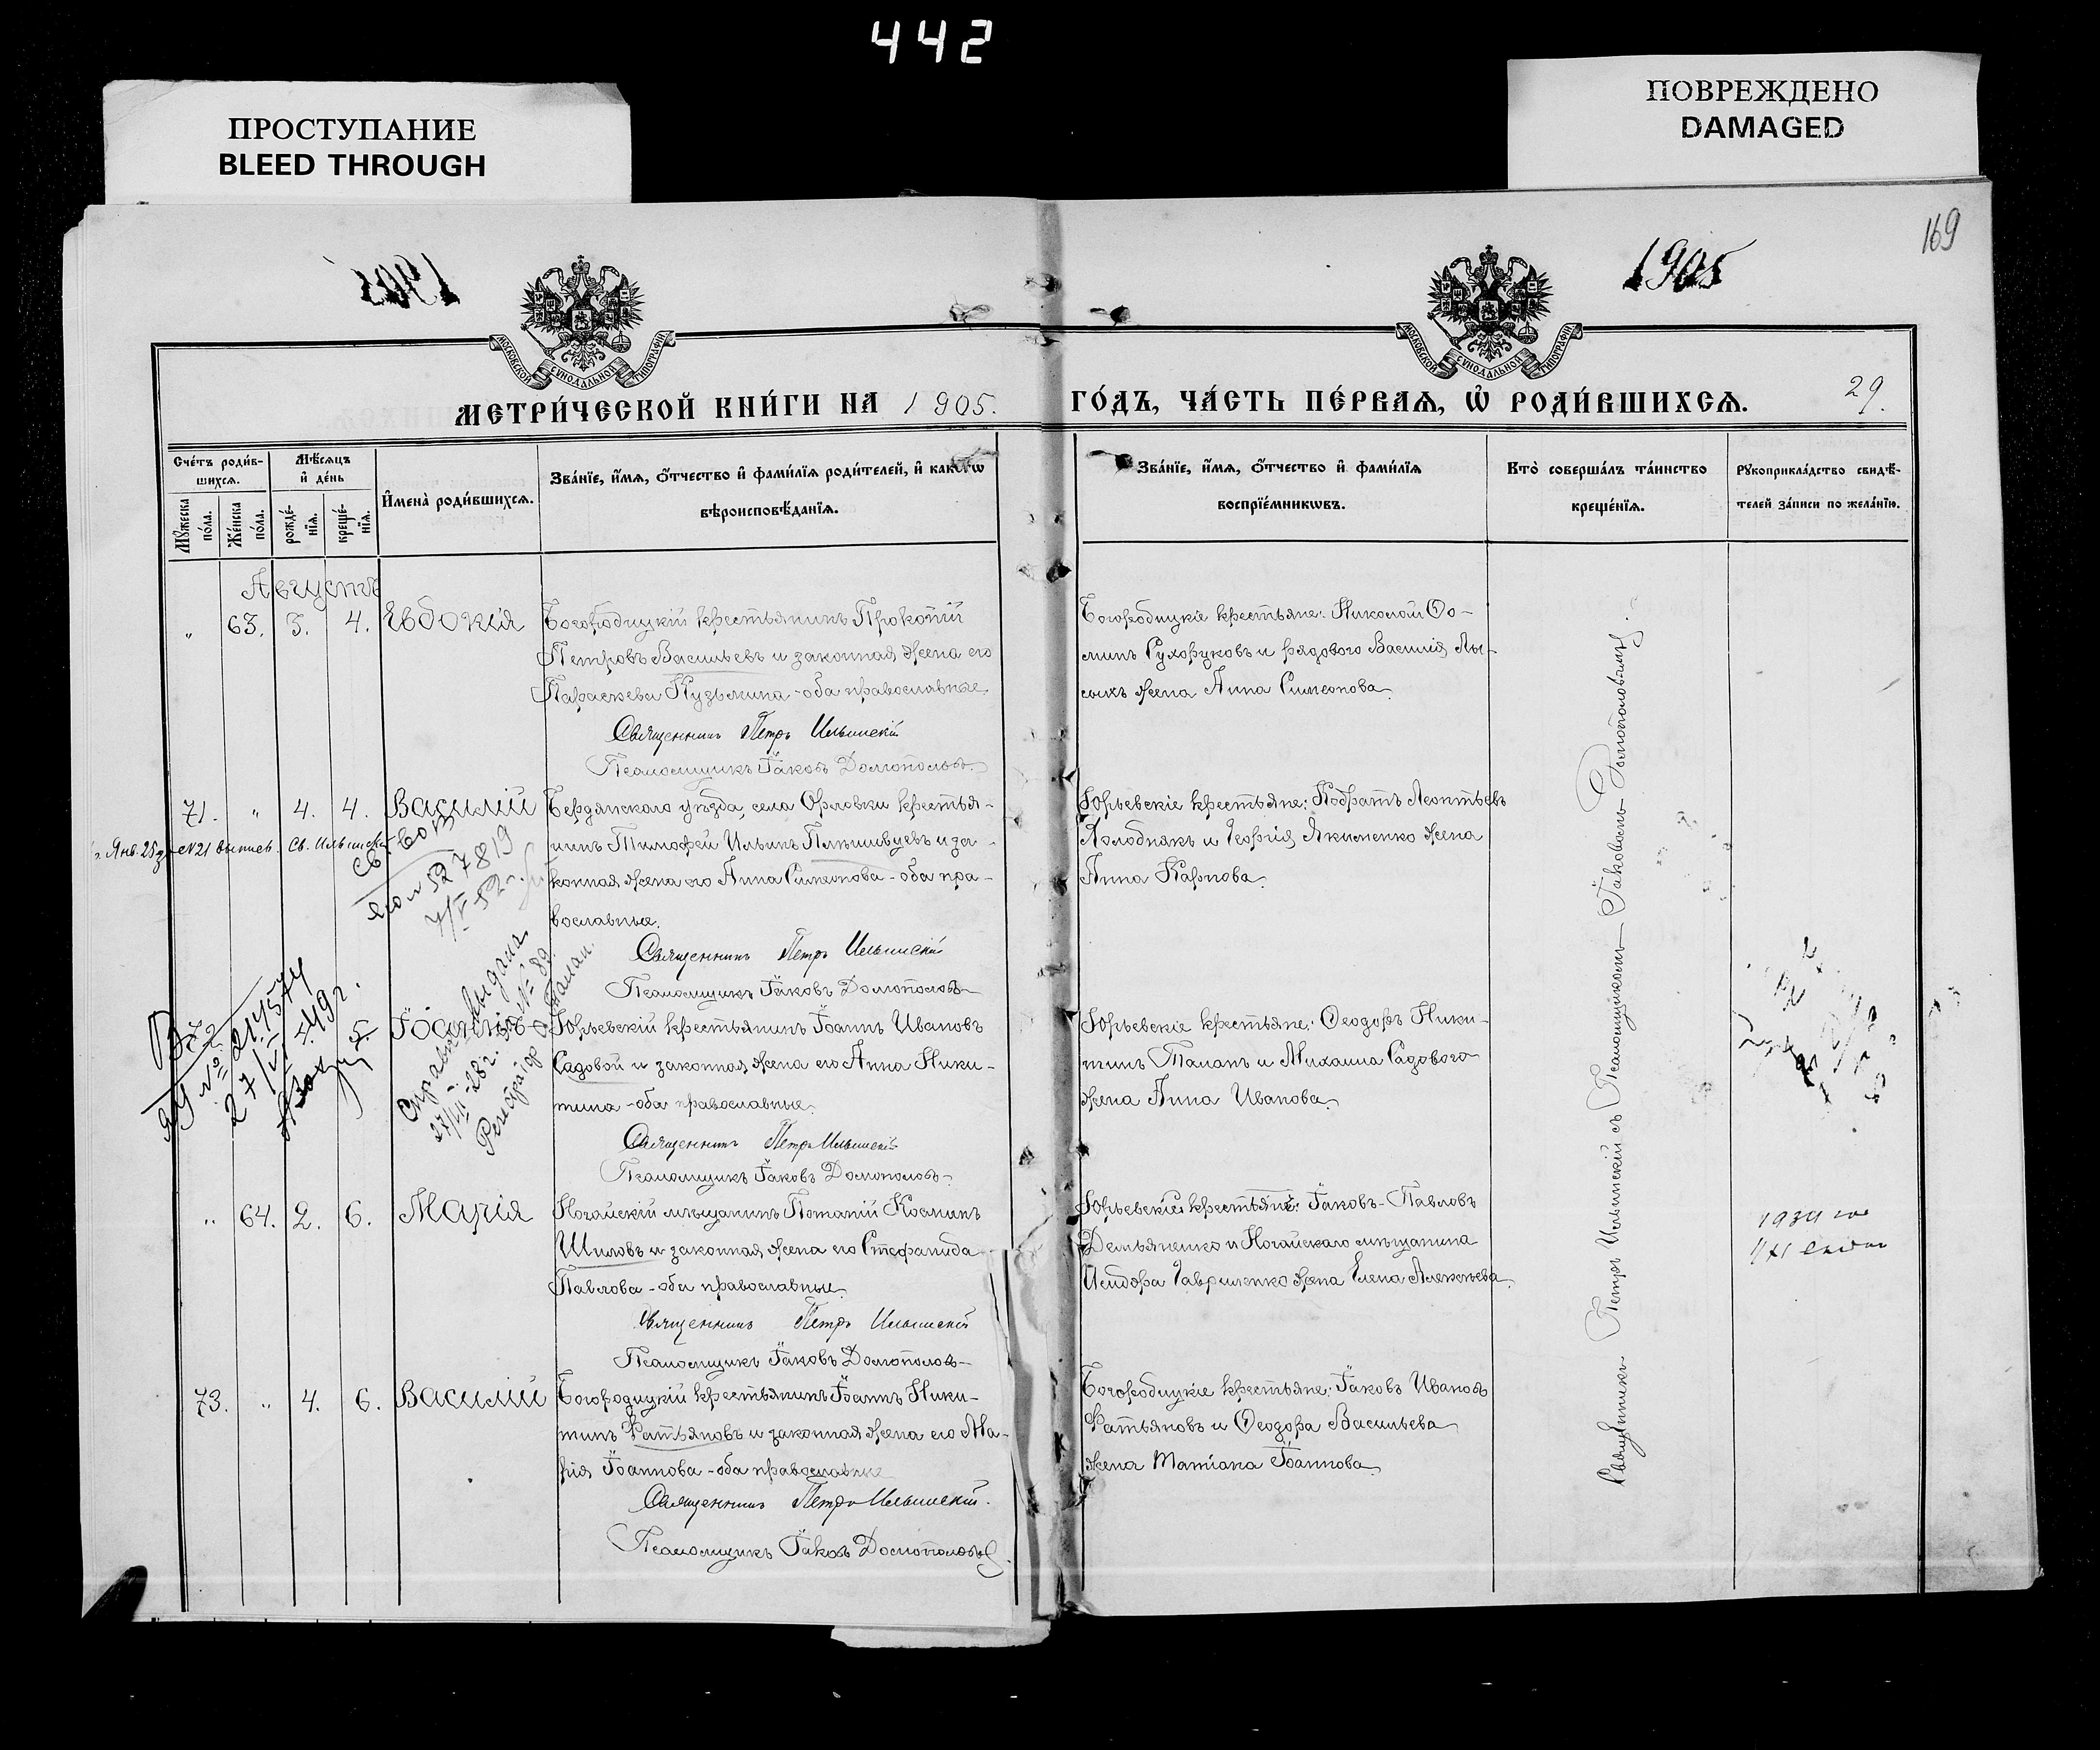 442
ПРОСТУПАНИЕ
BLEED THROUGH
ПОВРЕЖДЕНО
DAMAGED
169
1905
1905
МОСКОВСКОЙ СѴНОДАЛЬНОЙ ТИПОГРАФІИ
МОСКОВСКОЙ СѴНОДАЛЬНОЙ ТИПОГРАФІИ
МЕТРИ́ЧЕСКОЙ КНИ́ГИ НА 1905. ГО́ДЪ, ЧА́СТЬ ПЕ́РВАѦ, Ѽ РОДИ́ВШИХСѦ. 29.
Сче́тъ роди́в-
шихсѧ.
Мꙋ́жеска по́ла.
Же́нска по́ла.
Мѣ́сѧцъ и҆ де́нь
рожде́-нїѧ.
креще́-нїѧ.
И҆мена̀ роди́вшихсѧ.
Зва́нїе, и҆́мѧ, ѻ҆́тчество и҆ фами́лїѧ роди́телей, и҆ како́гѡ
вѣроисповѣ́данїѧ.
Зва́нїе, и҆́мѧ, ѻ҆́тчество и҆ фами́лїѧ
воспрїе́мникѡвъ.
Кто̀ соверша́лъ та́инство
креще́нїѧ.
Рꙋкоприкла́дство свидѣ́-
телей за́писи по жела́нїю.
Августъ
„ 63. 3. 4. Евдокія
Богородицкій крестьянинъ Прокопій
Петровъ Васильевъ и законная жена его
Параскева Кузьмина - оба православные
Священникъ Петръ Ильинскій
Псаломщикъ Іаковъ Домополовъ
Богородицкіе крестьяне: Николай Ѳо-
минъ Сухоруковъ и рядового Василія Лы-
сыхъ жена Анна Симеонова
71. „ 4. 4. Василій
Бердянскаго уѣзда, села Орловки крестья-
нинъ Тимофей Ильинъ и за-
конная жена его Анна Симеонова - оба пра-
вославные.
Священникъ Петръ Ильинскій
Псаломщикъ Іаковъ Домополовъ
Юрьевскіе крестьяне: Кодратъ Леонтьевъ
Холоднякъ и Георгія Якименко жена
Анна Карпова.
Янв. 25 № 21 выпись. Св. Ильинскій
527819
7/V-52 г.
72 5.
№ 214574
27/VI 49 г.
Справка выдана
27/VI-28 г. за № 89
Юрьевскій крестьянинъ Іоаннъ Ивановъ
Садовой и законная жена его Анна Ники-
тина - оба православные.
Священникъ Петръ Ильинскій
Псаломщикъ Іаковъ Домополовъ
Юрьевскіе крестьяне: Ѳеодоръ Ники-
тинъ Таланъ и Михаила Садового
жена Анна Иванова.
„ 64. 2. 6. Марія
Ногайскій мѣщанинъ Потапій Косминъ
Шиловъ и законная жена его Стефанида
Павлова - оба православные.
Священникъ Петръ Ильинскій
Псаломщикъ Іаковъ Домополовъ
Юрьевскій крестьянинъ: Іаковъ Павловъ
Демьяненко и Ногайскаго мѣщанина
Исидора Гавриленко жена Елена Алексѣева.
1939
73. „ 4. 6. Василій
Богородицкій крестьянинъ Іоаннъ Ники-
тинъ Фатьяновъ и законная жена его Ма-
рія Іоаннова - оба православные
Священникъ Петръ Ильинскій.
Псаломщикъ Іаковъ Домополовъ
Богородицкіе крестьяне: Іаковъ Ивановъ
Фатьяновъ и Ѳеодора Васильева
жена Татіана Іоаннова.
Священникъ Петръ Ильинскій съ Псаломщикомъ Іаковомъ Домополовымъ.